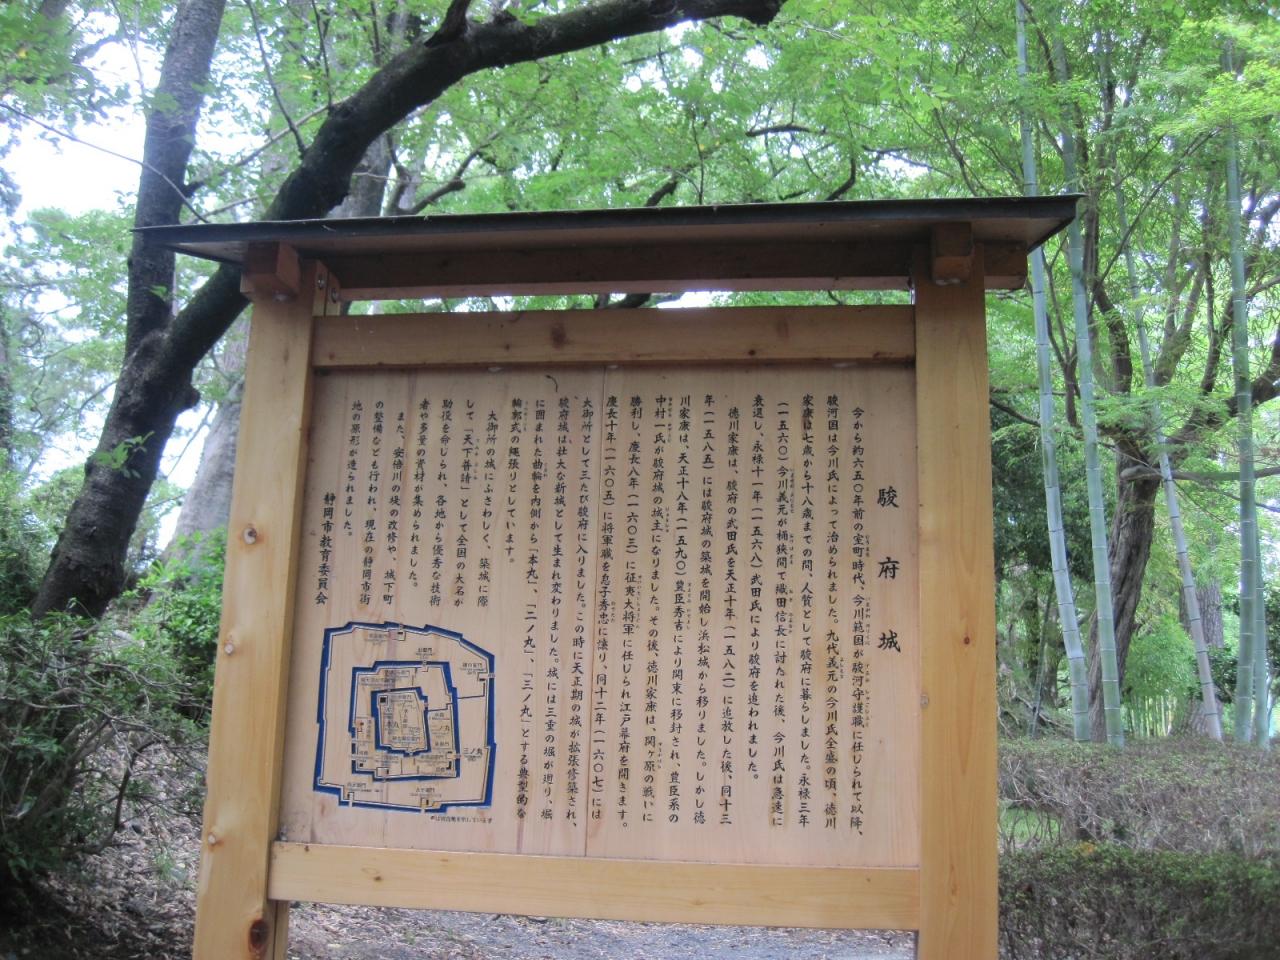 駿府城
今から約六五〇年前の室町時代、今川範国が駿河守護職に任じられて以降、
駿河国は今川氏によって治められました。九代義元の今川氏全盛の頃、徳川
家康は七歳から十八歳までの間、人質として駿府に暮らしました。永禄三年
(一五六〇)今川義元が桶狭間で織田信長に討たれた後、今川氏は急速に
衰退し、永禄十一年(一五六八)武田氏により駿府を追われました。
徳川家康は、駿府の武田氏を天正十年(一五八二)に追放した後、同十三
年(一五八五)には駿府城の築城を開始し浜松城から移りました。しかし徳
川家康は、天正十八年(一五九〇)豊臣秀吉により関東に移封され、豊臣系の
中村一氏が駿府城の城主になりました。その後、徳川家康は、関ヶ原の戦いに
勝利し、慶長八年(一六〇三)に征夷大将軍に任じられ江戸幕府を開きます。
慶長十年(一六〇五)に将軍職を息子秀忠に譲り、同十二年(一六〇七)には
大御所として三たび駿府に入りました。この時に天正期の城が拡張修築され、
駿府城は壮大な新城として生まれ変わりました。城には三重の堀が廻り、堀
に囲まれた曲輪を内側から「本丸」、「二ノ丸」、「三ノ丸」とする典型的な
輪郭式の縄張りとしています。
大御所の城にふさわしく、築城に際
して「天下普請」として全国の大名が
助役を命じられ、各地から優秀な技術
者や多量の資材が集められました。
また、安倍川の堤の改修や、城下町
の整備なども行われ、現在の静岡市街
地の原形が造られました。
静岡市教育委員会
本丸
二ノ丸
三ノ丸